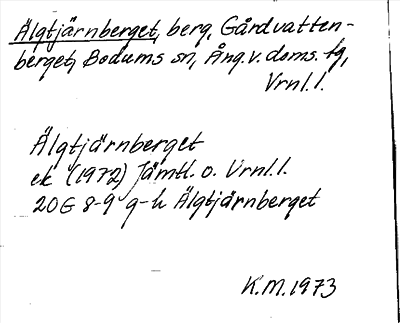 Älgtjärnberget, berg, Gårdvatten-
berget, Bodums sn, Ång. v. doms. fg,
Vrnl. l.
Älgtjärnberget
ek (1972) Jämtl. o. Vrnl. l.
20G 8-9 g-h Älgtjärnberget
K.M. 1973